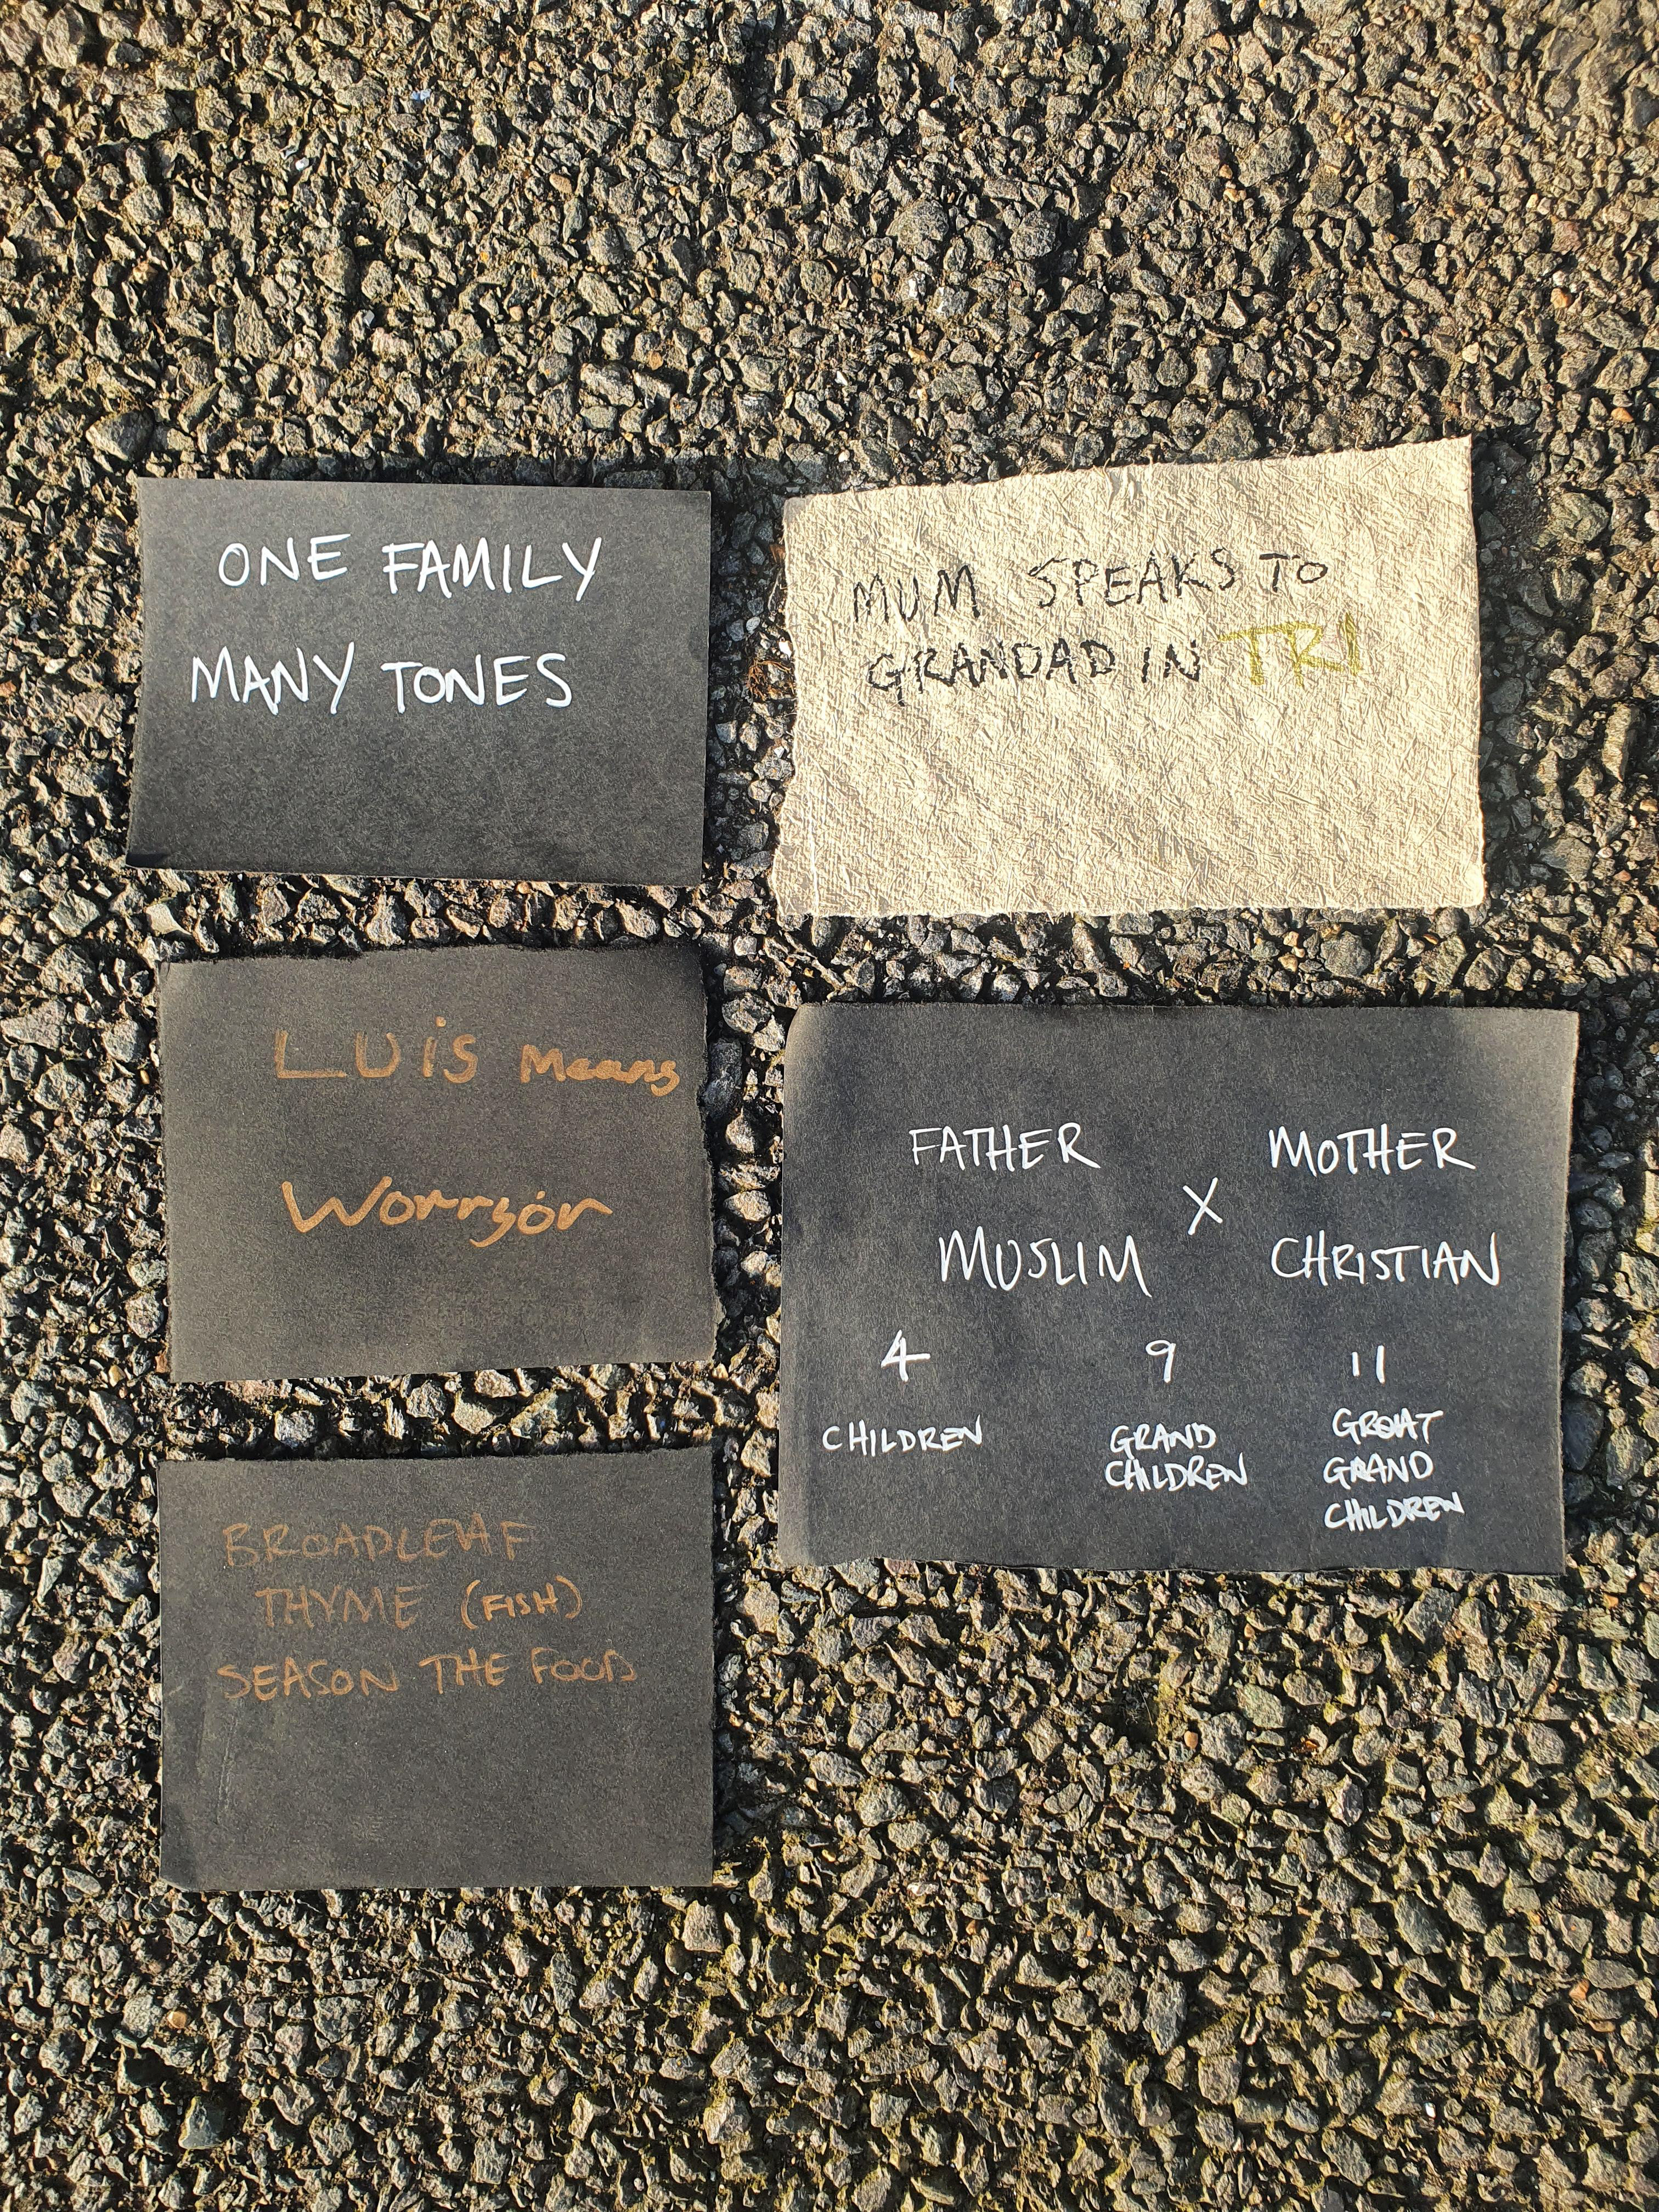 ONE FAMILY
MANY TONES
MUM SPEAKS TO
GRANDAD IN TRI
LUiS Means
Worryór
FATHER X MOTHER
MUSLIM CHRISTIAN
4 9 11
CHILDREN GRAND GREAT
CHILDREN GRAND
CHILDREN
BROADLEAF
THYME (FISH)
SEASON THE FOOD